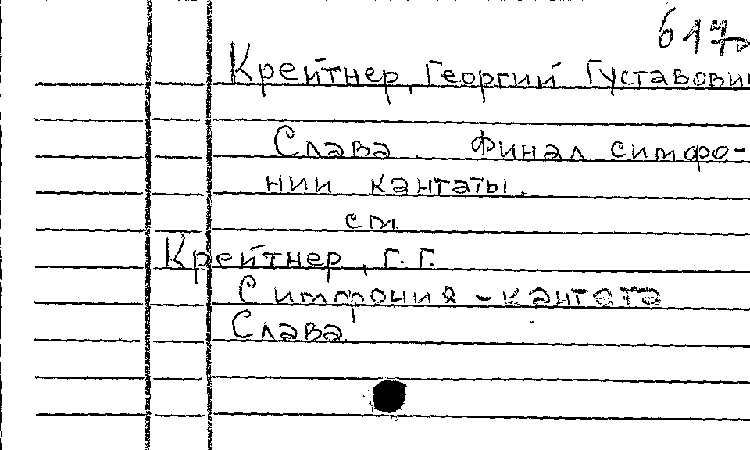 617
Крейтнер, Георгий Густавович
Слава. Финал симфо-
нии кантаты.
см
Крейтнер, Г. Г.
Симфония-кантата
Слава